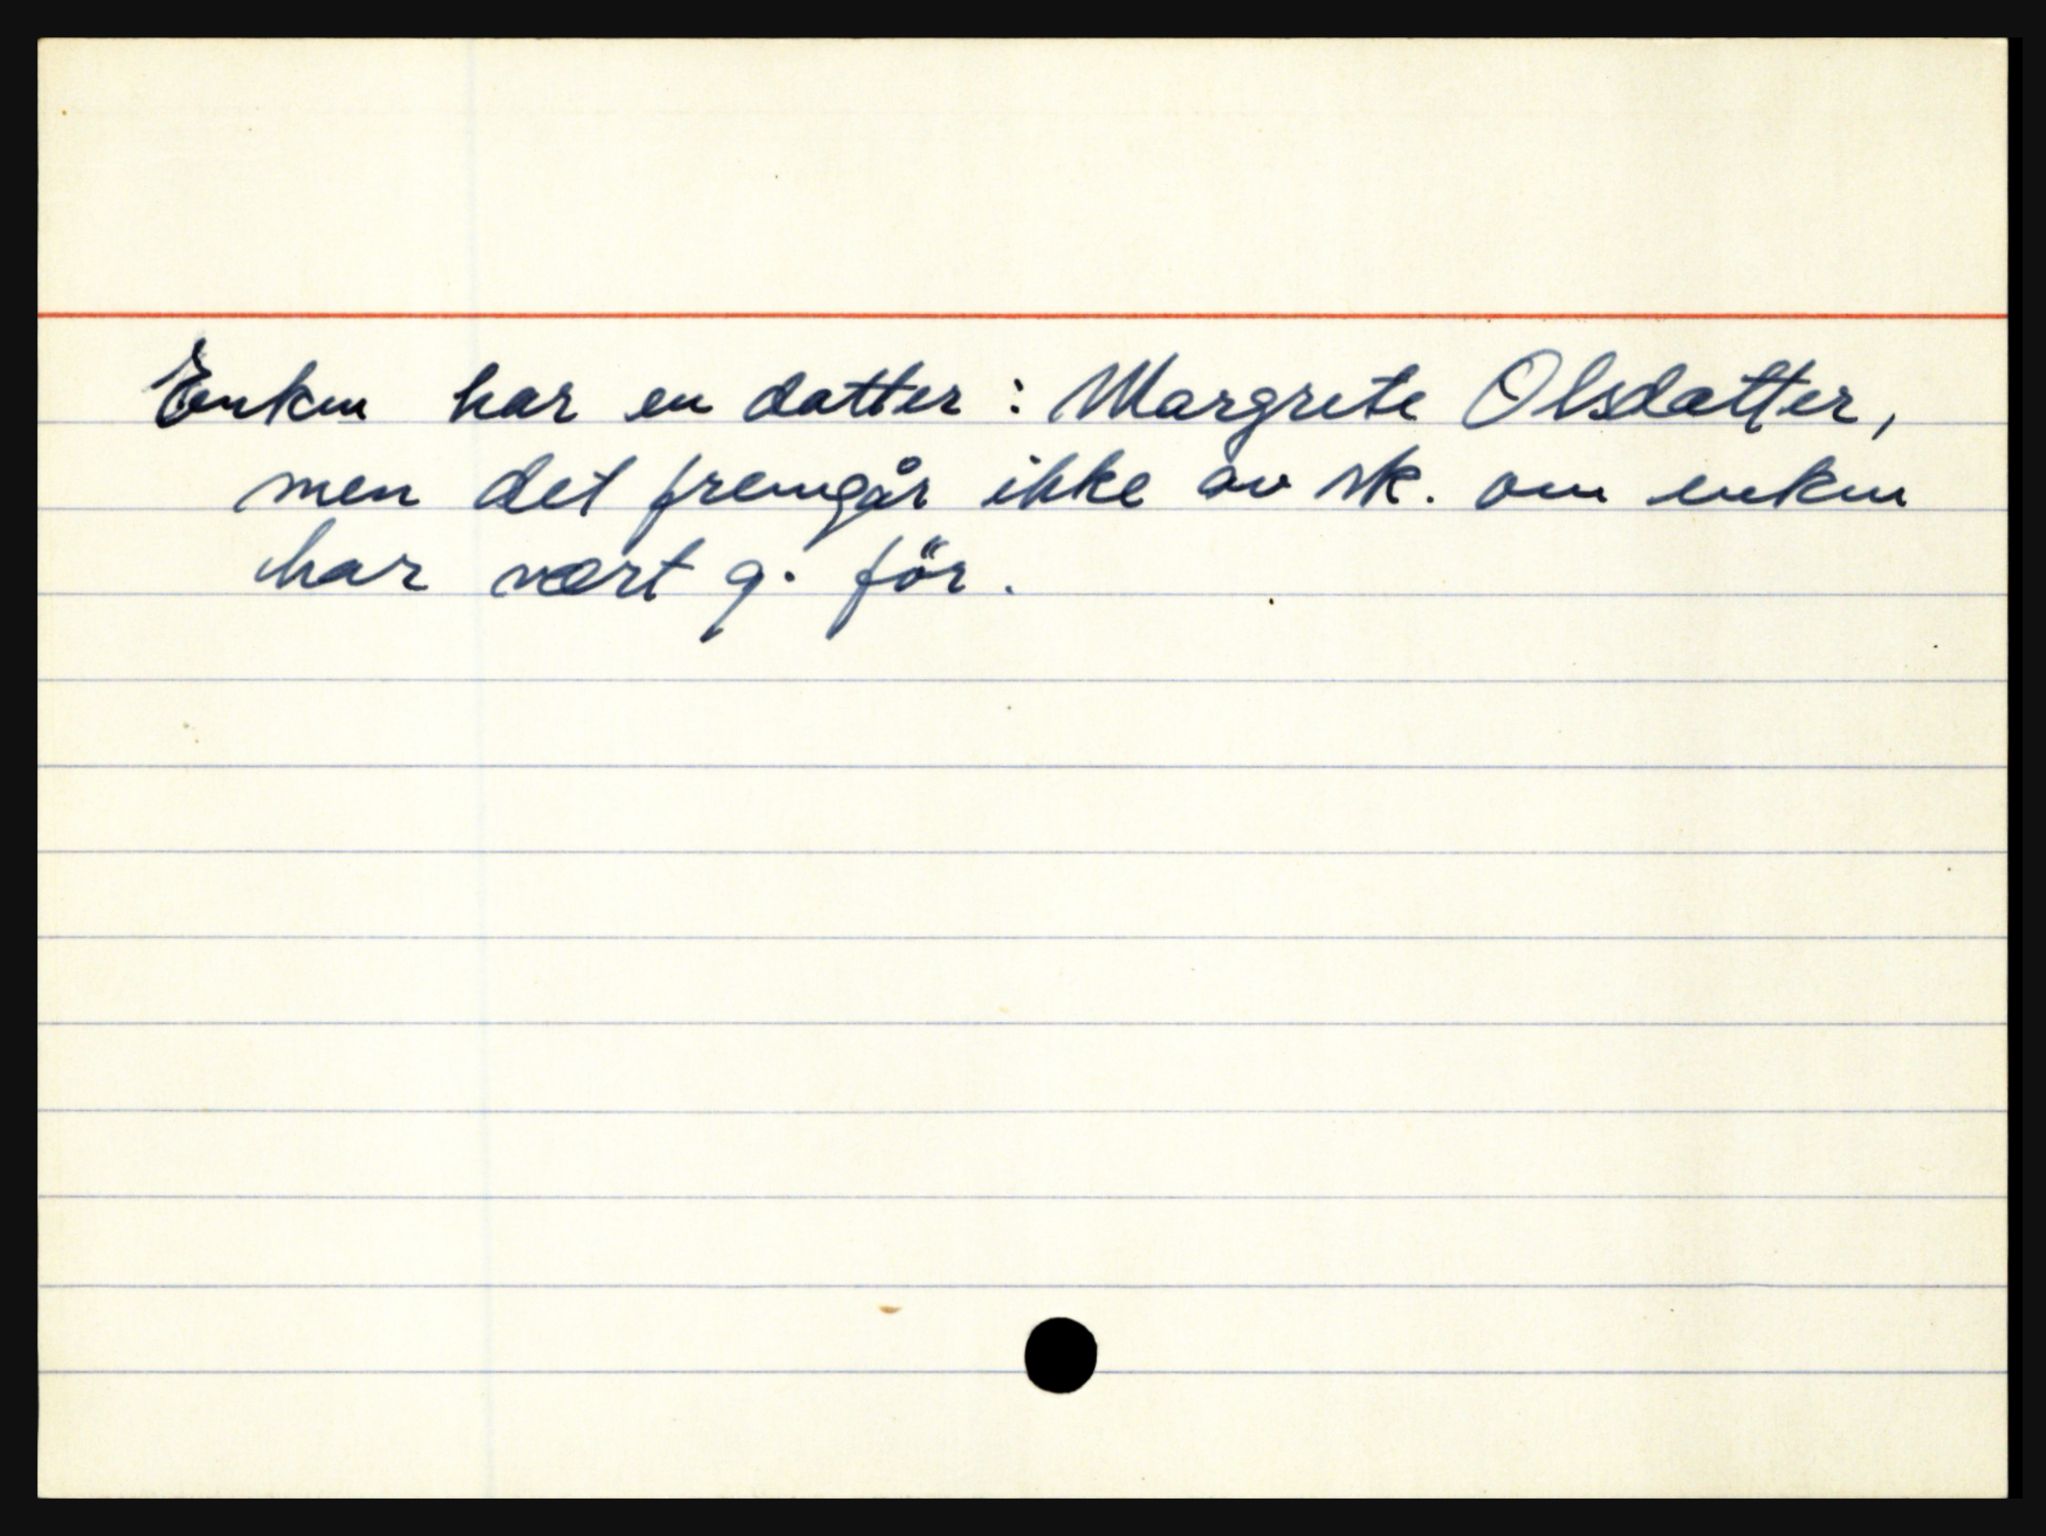 Enken har en datter : Margrete Olsdatter,
men det fremgår ikke av sk. om enken
har vært g. för.